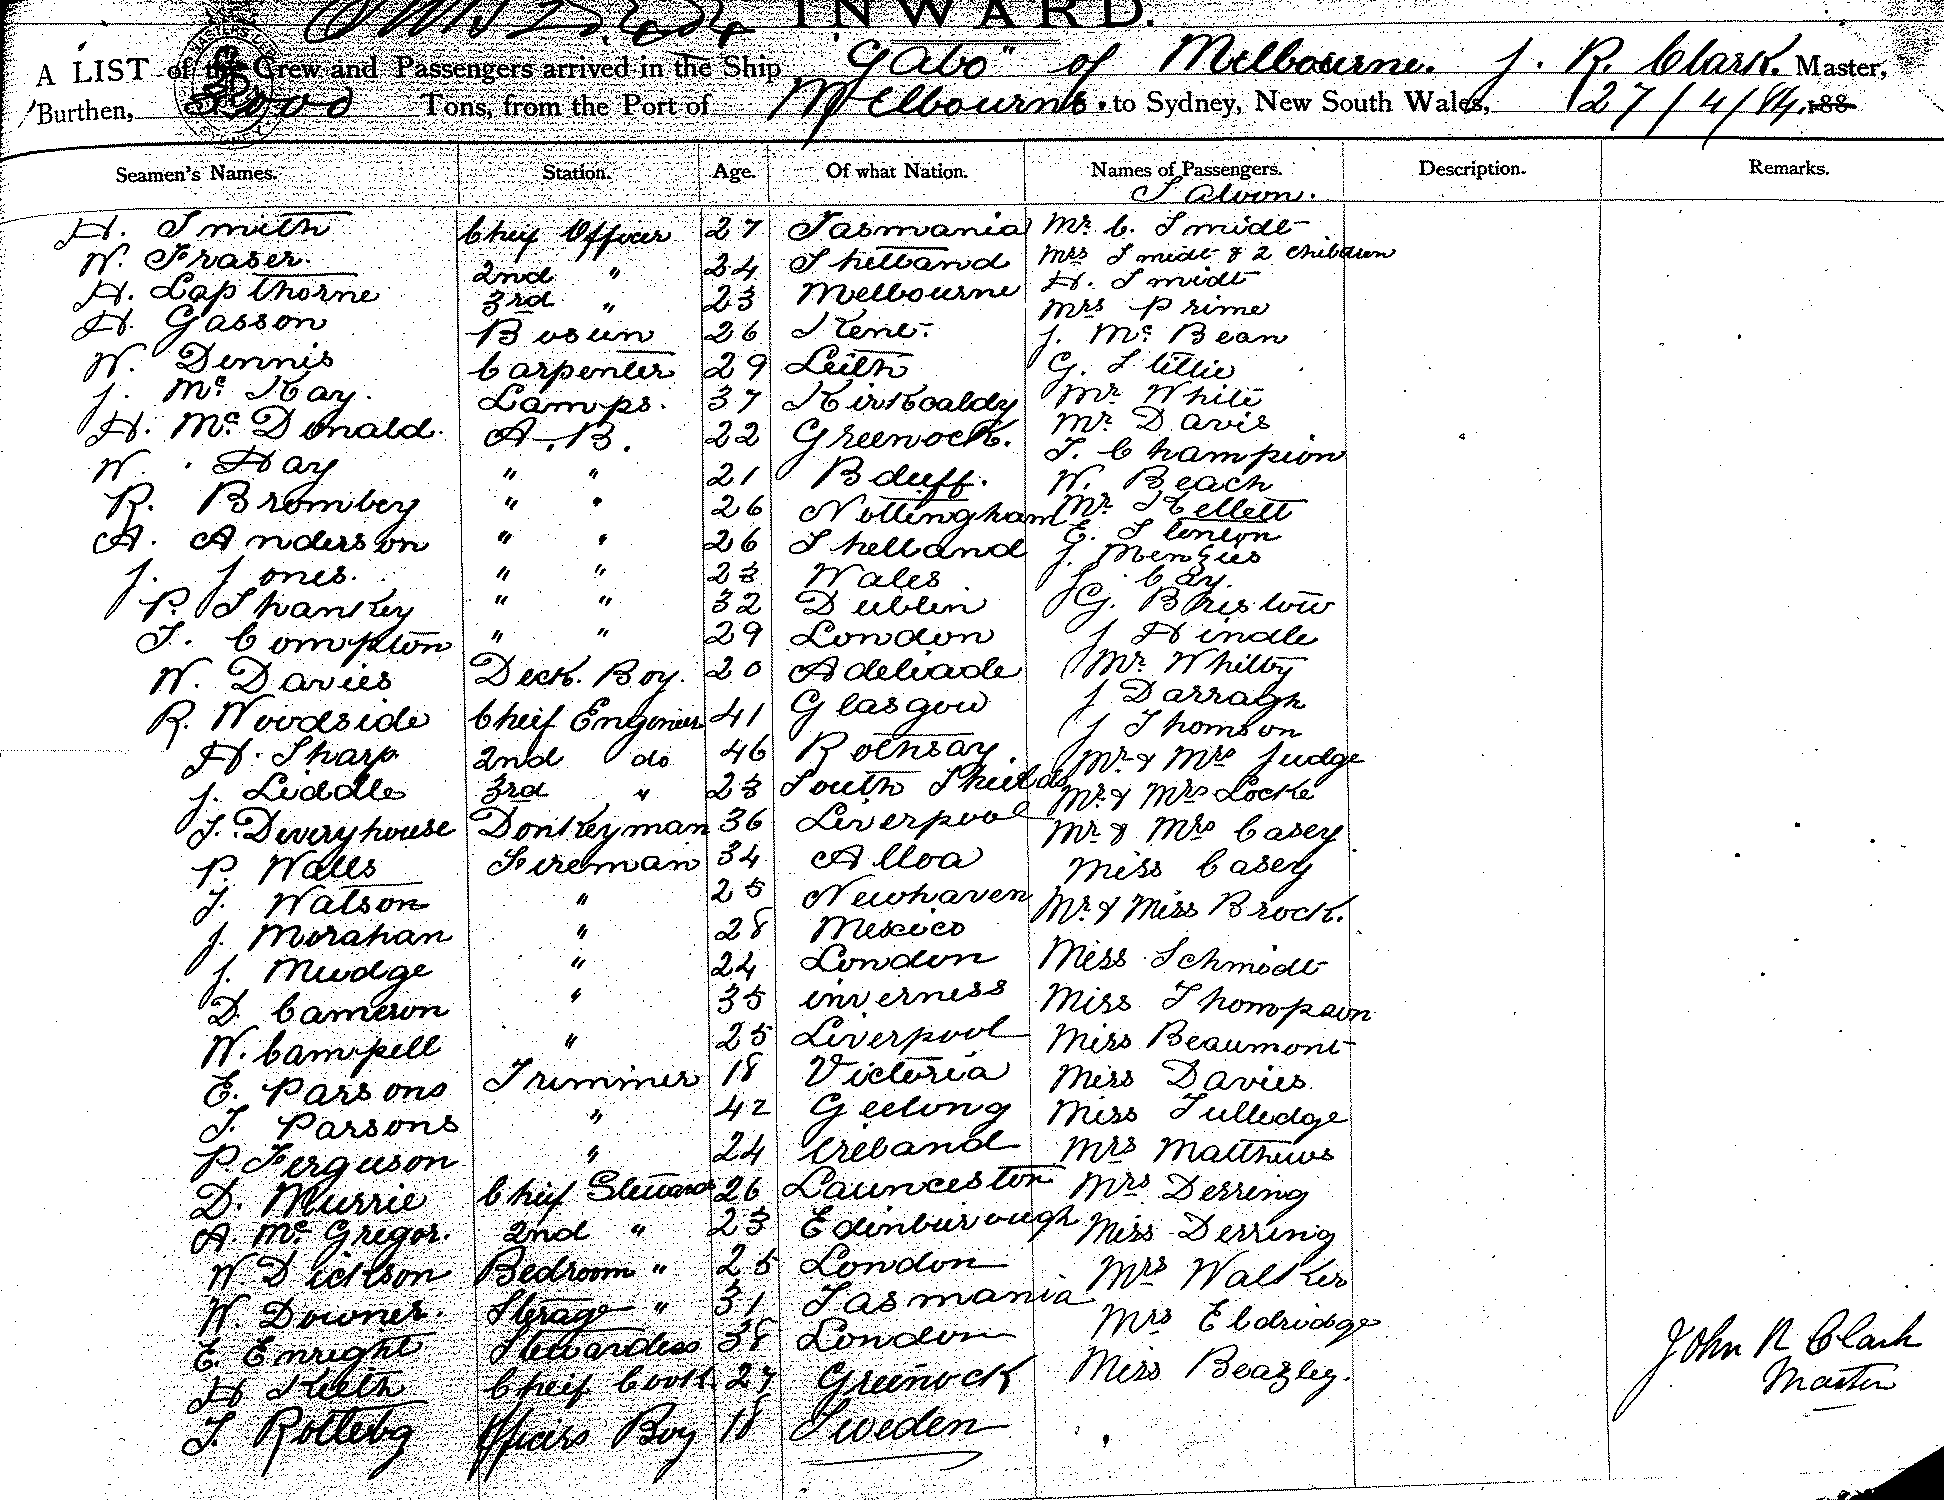 INWARD.
A LIST of the Crew and Passengers arrived in the Ship "Gabo" of Melbourne. J. R. Clark. Master,
Burthen, 2000 Tons, from the Port of Melbourne. to Sydney, New South Wales, 27/4/84. 188
Seamen's Names. Station. Age. Of what Nation. Names of Passengers. Description. Remarks.
Saloon.
H. Smith Chief Officer 27 Tasmania Mr C. Smidt
W. Fraser. 2nd " 24 Shetland Mrs Smidt & 2 children
H. Lapthorne 3rd " 23 Melbourne H. Smidt
H. Gasson Bosun 26 Kent. Mrs Prime
W. Dennis Carpenter 29 Leith J. Mc Bean
J. Mc Kay. Lamps. 37 Kirkcaldy G. Little
H. Mc Donald. A.B. 22 Greenock. Mr White
W. Hay " " 21 Bduff. Mr Davis
R. Brombey " " 26 Nottingham T. Champion
A. Anderson " " 26 Shetland W. Beach
J. Jones. " " 23 Wales Mr Kellett
P. Shankey " " 32 Dublin E. Stenton
T. Compton " " 29 London J. Menzies
W. Davies Deck. Boy. 20 Adeliade J. Cay.
R. Woodside Cheif Engenier 41 Glasgow G. Bristow
H. Sharp 2nd do 46 Rothsay. J Hindle
J. Liddle 3rd " 23 South Shields Mr Whitby
T. Deveryhouse Donkeyman 36 Liverpool J Darragh
P. Walls Fireman 34 Alloa J Thomson
J. Watson " 25 Newhaven Mr & Mrs Judge
J. Morahan " 28 Mexico Mr & Mrs Locke
J. Mudge " 24 London Mr & Mrs Casey
D. Cameron " 35 inverness Miss Casey
W. Campell " 25 Liverpool Mr & Miss Brock.
E. Parsons Trimmer 18 Victoria Miss Schmidt
T. Parsons " 42 Geelong Miss Thompson
P. Ferguson " 24 Ireland Miss Beaumont
D. Murrie Cheif Steward 26 Launceston Miss Davies
A. Mc Gregor. 2nd " 23 Edinburough Miss Tulledge
W. Dickson Bedroom " 25 London Mrs Matthews
W. Downer. Sterage " 31 Tasmania Mrs Derring
E. Enright Stewardess 38 London Miss Derring
H Keith Cheif Cook 27 Greenock Mrs Walker
T. Rotteby Officers Boy 18 Sweden Mrs Eldridge
Miss Beazley.
John R Clark
Master